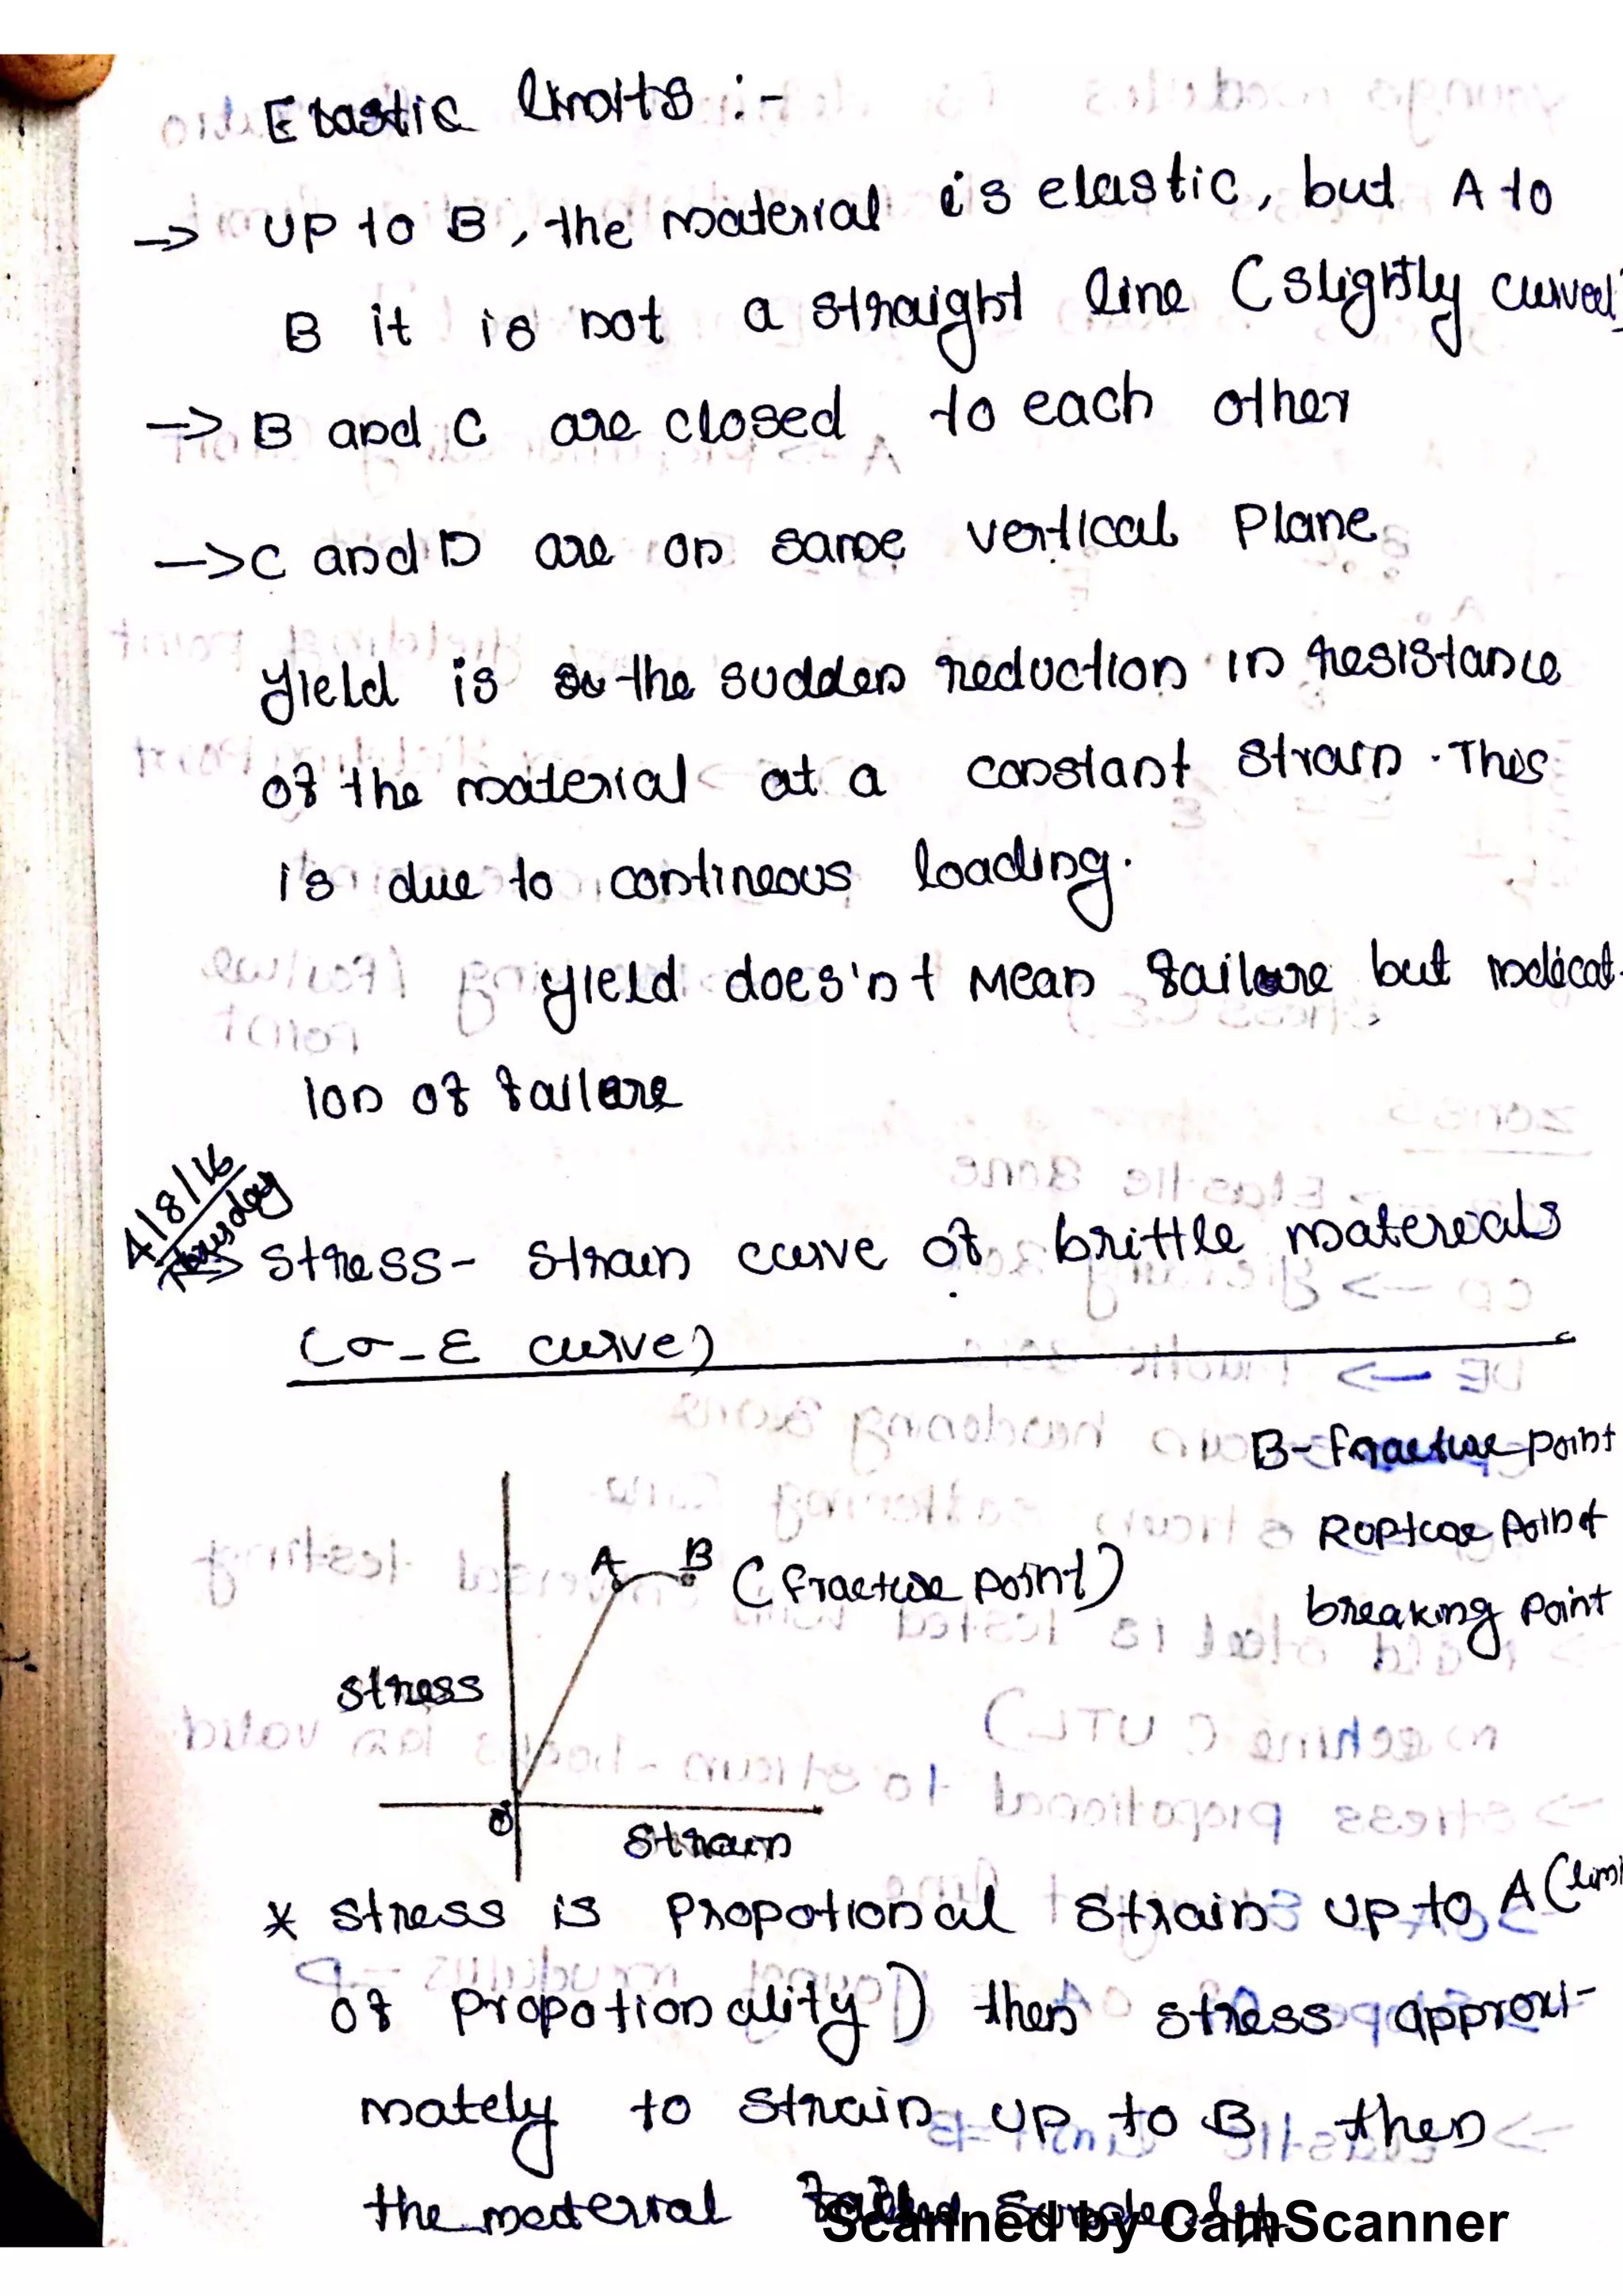 Elastic limits :-
-> UP to B, the material is elastic, but A to
B it is not a straight line (slightly curved)
-> B and C are closed to each other
-> C and D are on same vertical Plane
yield is the sudden reduction in resistance
of the material at a constant strain. This
is due to contineous loading.
yield does'nt Mean failure but indicat-
ion of failure
4/8/16
-> stress- strain curve of brittle matereials
(σ-ε curve)
B- fracture point
Rupture point
breaking point
A B (fracture point)
stress
O
strain
* stress is propotional strain up to A (limit
of propotionality) then stress approxi-
mately to strain up to B then
the material failed
Scanned by CamScanner